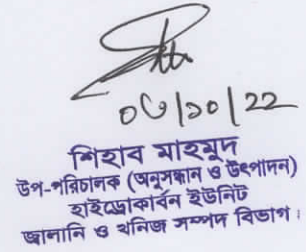 ০৩/১০/২২
শিহাব মাহমুদ
উপ-পরিচালক (অনুসন্ধান ও উৎপাদন)
হাইড্রোকার্বন ইউনিট
জ্বালানি ও খনিজ সম্পদ বিভাগ।